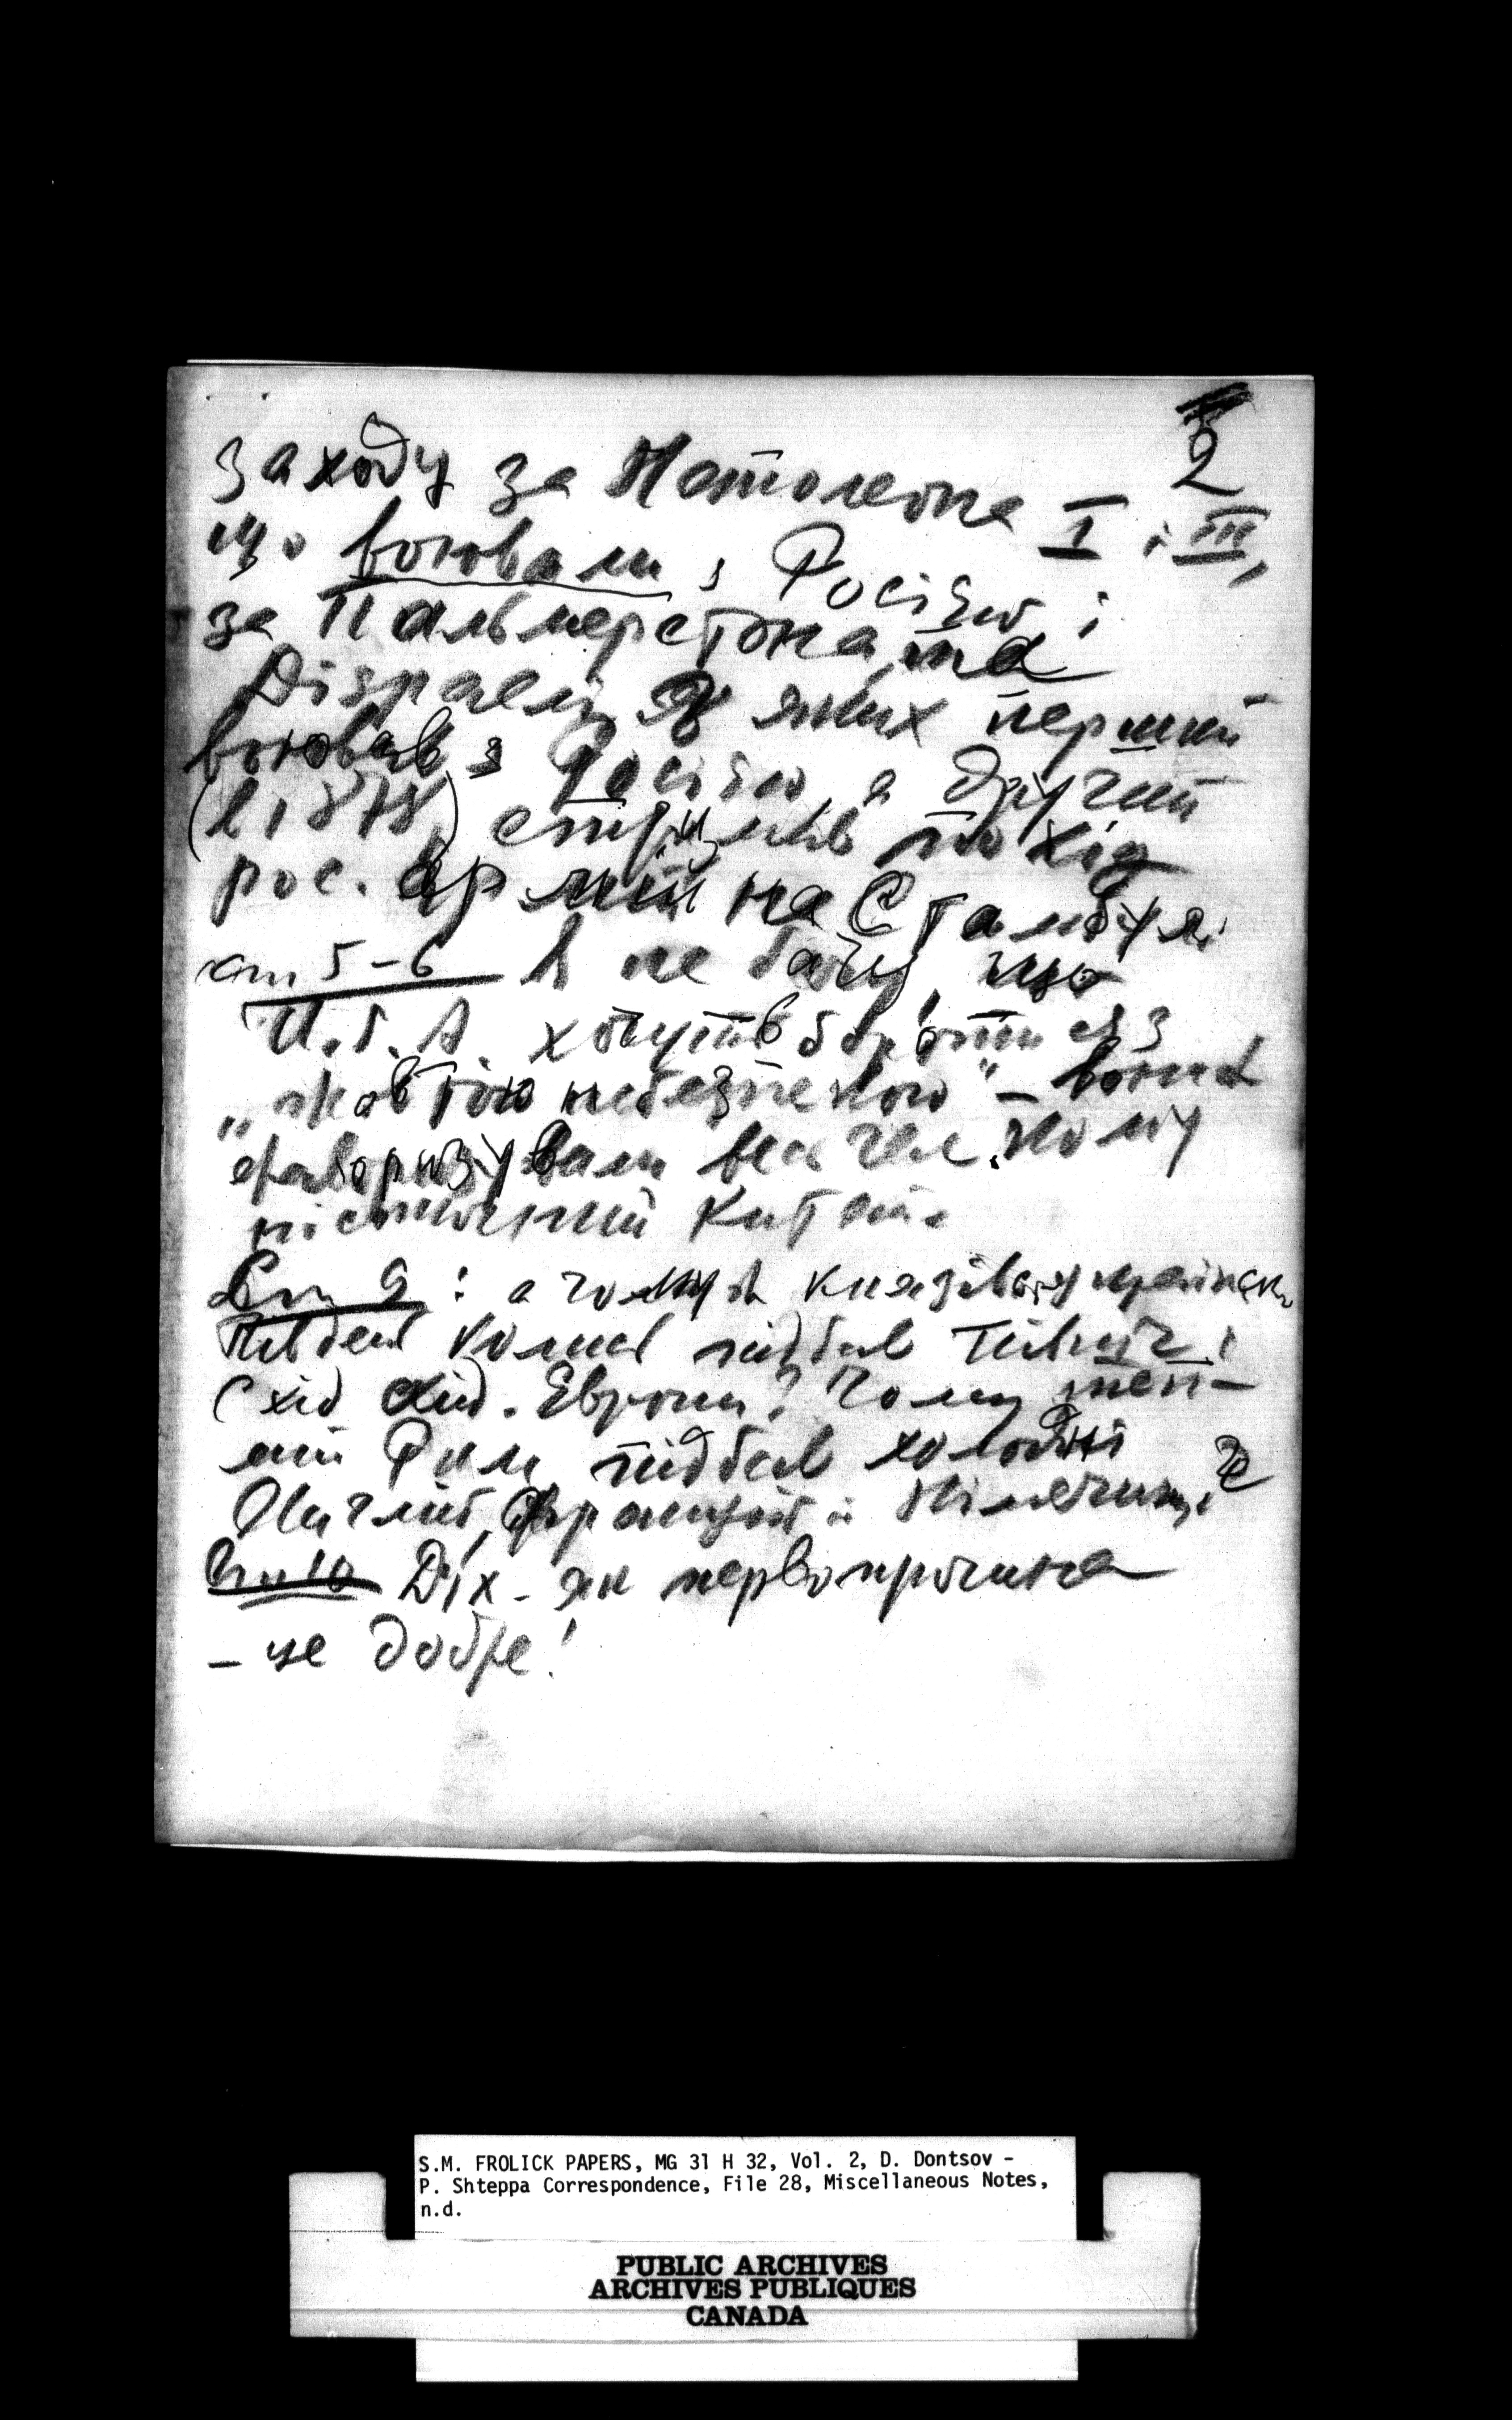 2
заходу за Наполеона I і III,
що воювали з Росією, і
за Пальмерстона, та
Дізраелі, з яких перший
воював з Росією, а другий
(в 1878) стримав похід
рос. армій на Стамбул.
ст 5-6 Я не бачу, що
U.S.A. хочуть боротися з
"жовтою небезпекою" – вони
фаворизували весь час
Китай.
Ст 9: а чому ж князівсько-український
Південь колись підбив Північ і
Схід Европи? Чому теп-
лий Рим підбив холодні
Англію, Францію й Німеччину?
Ст 10 Дух – як первопричина
– це добре!
S.M. FROLICK PAPERS, MG 31 H 32, Vol. 2, D. Dontsov -
P. Shteppa Correspondence, File 28, Miscellaneous Notes,
n.d.
PUBLIC ARCHIVES
ARCHIVES PUBLIQUES
CANADA